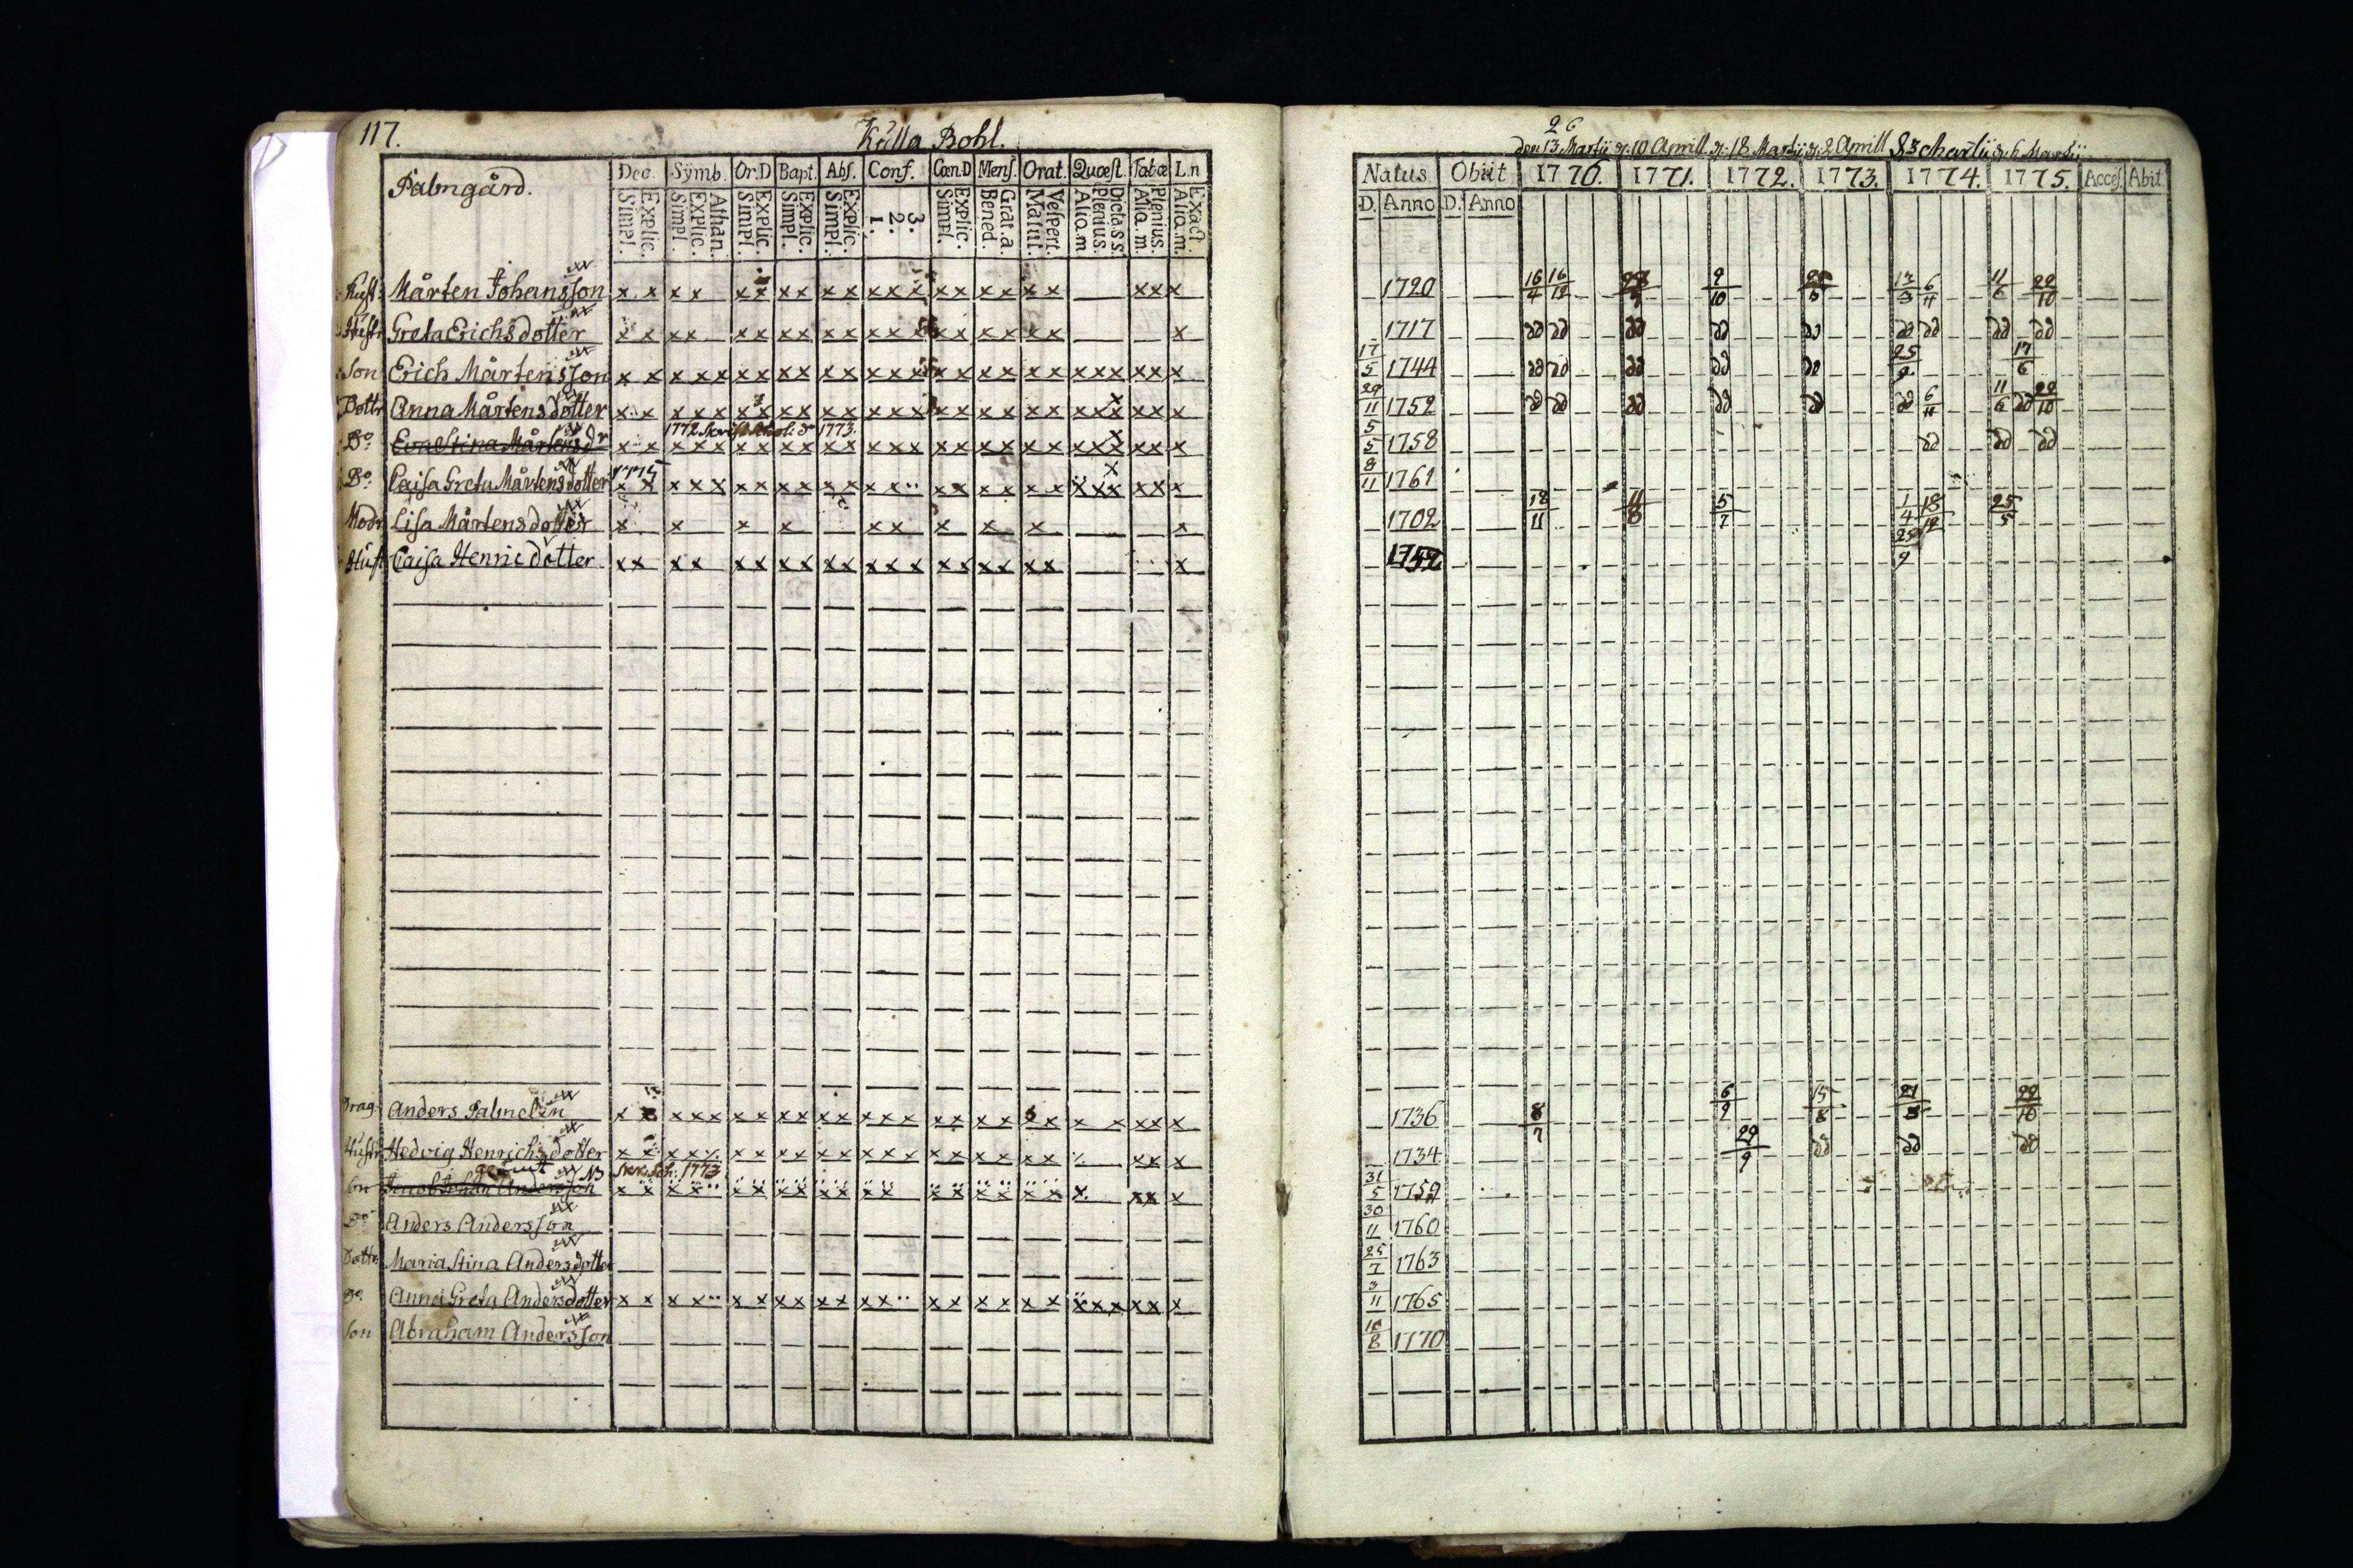 117.
Kulla Bohl.
Palmgård.
Dec. Symb. Or.D Bapt. Abs. Conf. Cœn.D Mens. Orat. Quæst. Tabæ L.n
Explic. Simpl. Athan. Explic. Simpl. Explic. Simpl. Explic. Simpl. Explic. Simpl. 3. 2. 1. Explic. Simpl. Grat.a. Bened. Vespert. Matut. Dicta.s.s. Plenius. Aliq.m Plenius. Aliq.m. Exact. Aliq.m.
Mårten Johansson x x x x x x x x x x x x x x x x x x x x x x
Hustr Greta Erichsdotter x x x x x x x x x x x x x x x x x x x x
Son Erich Mårtensson x x x x x x x x x x x x x x x x x x x x x x x x x x
Dottr Anna Mårtensdotter x x x x x x x x x x x x x x x x x x x x x x x x x x
1772 1773.
Do Eva Stina Mårtensdr x x x x x x x x x x x x x x x x x x x x x x x x x x
1775
Do Caisa Greta Mårtensdotter x x x x x x x x x x x x x x x x x x x x x x x x x
Modr Lisa Mårtensdotter x x x x x x x x x x
Hust Caisa Henricdotter x x x x x x x x x x x x x x x x x x x x
Drag. Anders Palmelin x x x x x x x x x x x x x x x x x x x x x x
Hustr Hedvig Henrichsdotter x x x x x x x x x x x x x x x x x x x x x
1773
Son Jacob Johan Andersson x x x x x x x x x x x x x x x x x x x x
Do Anders Andersson
Dottr Maria Stina Andersdotter
Do Anna Greta Andersdotter x x x x x x x x x x x x x x x x x x x x x x x x
Son Abraham Andersson
26
den 13 Martii d. 10 Aprill d. 18 Martii d. 2 Aprill d. 6 Martii
Natus Obiit 1770. 1771. 1772. 1773. 1774. 1775. Acces. Abit.
D. Anno D. Anno
1720 16/4 16/12 9/10 6/11 11/6 22/10
1717 dd dd dd dd dd dd dd dd dd
17/5 1744 dd dd dd dd dd 25/9 17/6
29/11 1752 dd dd dd dd dd dd 6/11 11/6 dd 22/10
5/5 1758 dd dd dd
8/11 1761
1702 18/11 5/7 1/4 18/12 25/5
1752 25/9
1736 8/7 6/9 15/8 22/10
1734 29/9 dd dd dd
31/5 1759
30/11 1760
25/7 1763
3/11 1765
10/8 1770